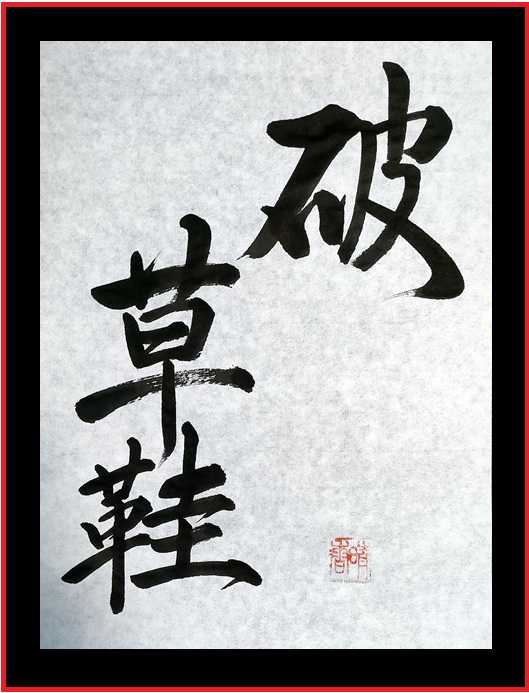 破
草鞋